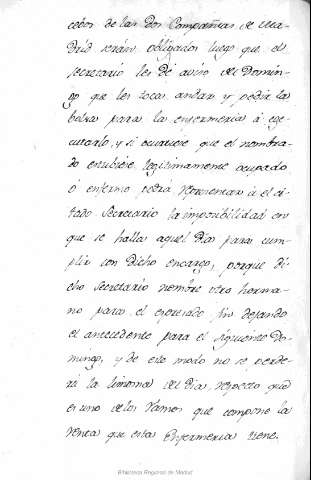 cebos de las dos Compañias de Ma-
drid seran obligados luego que el
secretario les dé aviso del Domin-
go que les toca andar y pedir la
bolsa para la enfermeria á ege-
cutarlo, y si ocurriese que el nombra-
do estubiese legitimamente ocupado
ó enfermo podra representar á el ci-
tado Secretario la imposibilidad en
que se halla aquel Dia para cum-
plir con dicho encargo, porque di-
cho Secretario nombre otro herma-
no para el espresado fin dejando
el antecedente para el siguiente Do-
mingo, y de este modo no se perde-
rá la limosna del dia, respecto que
es uno de los ramos que compone la
renta que esta Enfermeria tiene.
Biblioteca Regional de Madrid